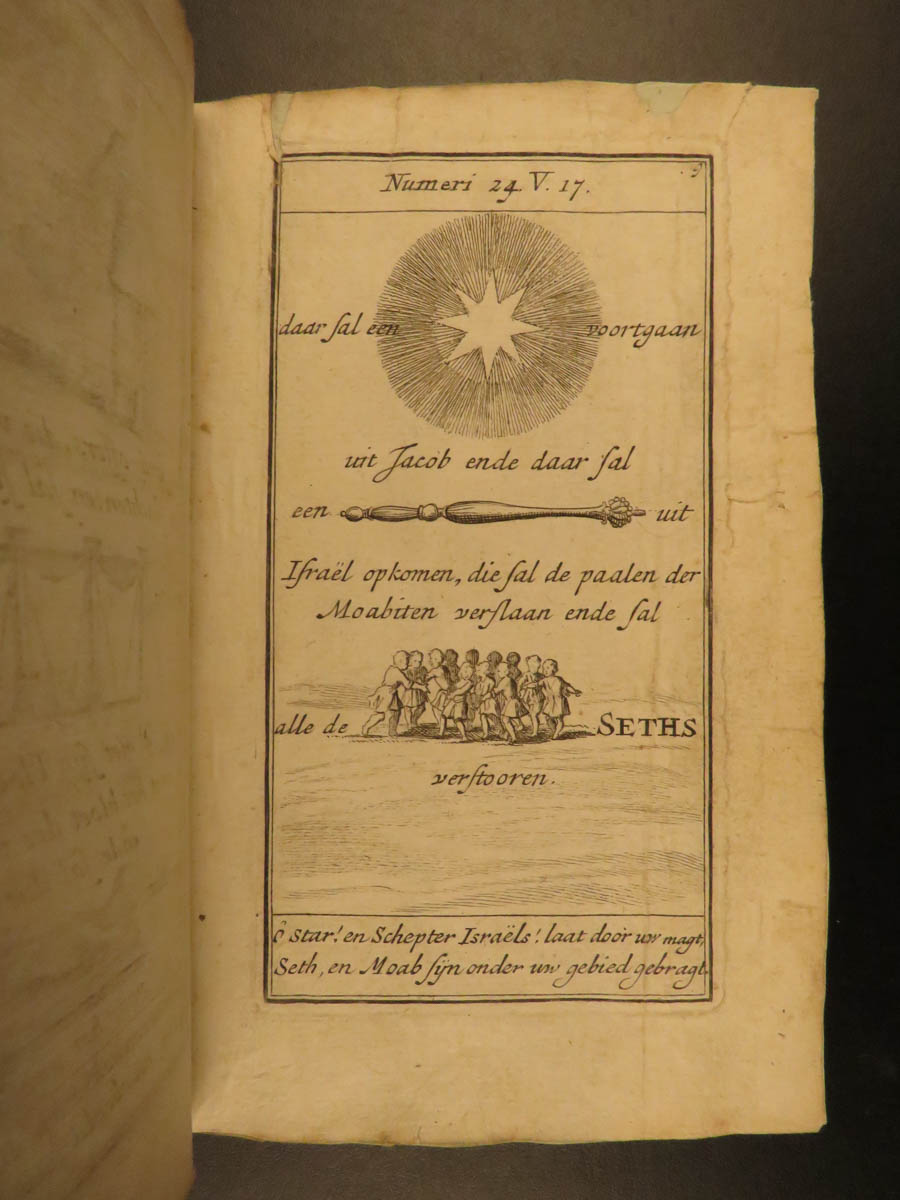 9
Numeri 24 V. 17.
daar sal een voortgaan
uit Jacob ende daar sal
een uit
Israël opkomen, die sal de paalen der
Moabiten verslaan ende sal
alle de SETHS
verstooren.
ô Star! en Schepter Israëls! laat door uw magt,
Seth, en Moab sijn onder uw gebied gebragt.